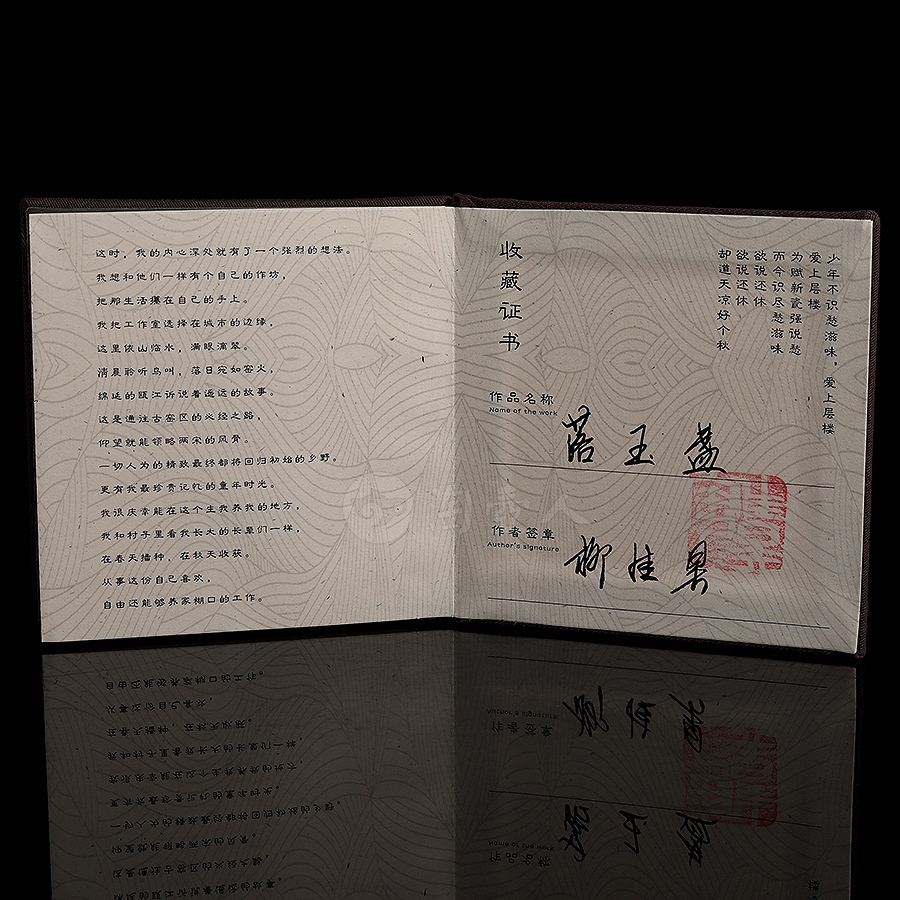 这时，我的内心深处就有了一个强烈的想法。
我想和他们一样有个自己的作坊，
把那生活攥在自己的手上。
我把工作室选择在城市的边缘，
这里依山临水，满眼滴翠。
清晨聆听鸟叫，落日宛如窑火，
绵延的瓯江诉说着遥远的故事。
这是通往古窑区的必经之路，
仰望就能领略两宋的风骨。
一切人为的精致最终都将回归初始的乡野。
更有我最珍贵记忆的童年时光。
我很庆幸能在这个生我养我的地方，
我和村子里看我长大的长辈们一样，
在春天播种，在秋天收获。
从事这份自己喜欢，
自由还能够养家糊口的工作。
收藏证书
少年不识愁滋味，爱上层楼
爱上层楼
为赋新瓷强说愁
而今识尽愁滋味
欲说还休
欲说还休
却道天凉好个秋
作品名称
Name of the work
落玉盏
作者签章
Author's signature
柳佳果